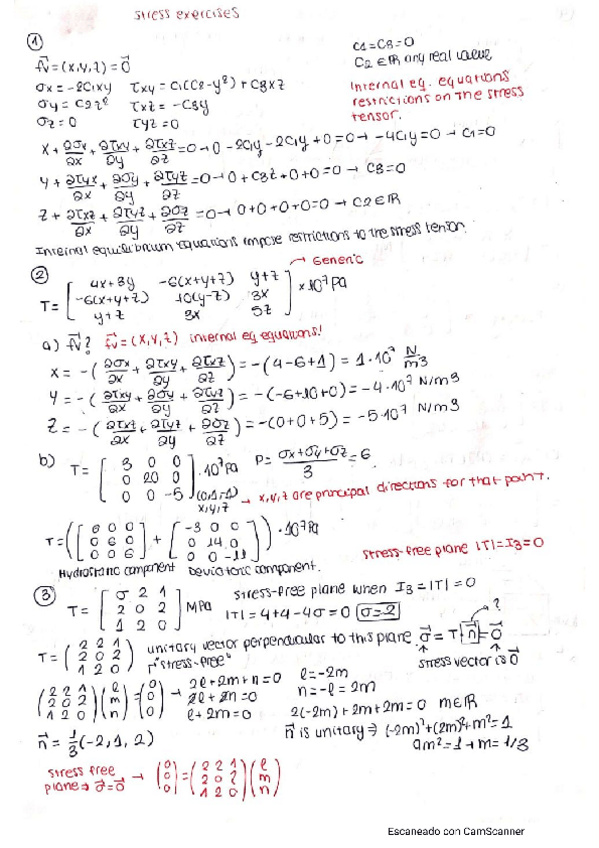 stress exercises
①
f⃗v = (X,Y,Z) = 0⃗
σx = -2C1xy  τxy = C1(C2-y²) + C3xz
σy = C2z²  τxz = -C3y
σz = 0  τyz = 0
C1 = C3 = 0
C2 ∈ ℝ any real value
Internal eq. equations
restrictions on the stress
tensor.
X + ∂σx/∂x + ∂τxy/∂y + ∂τxz/∂z = 0 → 0 - 2C1y - 2C1y + 0 = 0 → -4C1y = 0 → C1 = 0
Y + ∂τyx/∂x + ∂σy/∂y + ∂τyz/∂z = 0 → 0 + C3z + 0 + 0 = 0 → C3 = 0
Z + ∂τxz/∂x + ∂τyz/∂y + ∂σz/∂z = 0 → 0 + 0 + 0 + 0 = 0 → C2 ∈ ℝ
Internal equilibrium equations impose restrictions to the stress tensor.
②
→ Generic
T = [ 4x+3y  -6(x+y+z)  y+z
-6(x+y+z)  10(y-z)  3x
y+z  3x  5z ] × 10⁷ Pa
a) f⃗v? f⃗v = (X,Y,Z) internal eq equations!
X = -(∂σx/∂x + ∂τxy/∂y + ∂τxz/∂z) = -(4-6+1) = 1·10⁷ N/m3
Y = -(∂τxy/∂x + ∂σy/∂y + ∂τyz/∂z) = -(-6+10+0) = -4·10⁷ N/m3
Z = -(∂τxz/∂x + ∂τyz/∂y + ∂σz/∂z) = -(0+0+5) = -5·10⁷ N/m3
b) T = [ 3 0 0
0 20 0
0 0 -5 ] ·10⁷ Pa (0,1,-1) x,y,z
P = (σx+σy+σz)/3 = 6
→ x,y,z are principal directions for that point.
T = ([ 6 0 0
0 6 0
0 0 6 ] + [ -3 0 0
0 14 0
0 0 -11 ]) ·10⁷ Pa
Hydrostatic component  Deviatoric component.
stress-free plane |T| = I3 = 0
③
T = [ σ 2 1
2 0 2
1 2 0 ] MPa
stress-free plane when I3 = |T| = 0
|T| = 4+4-4σ = 0 σ=2
?
T = ( 2 2 1
2 0 2
1 2 0 )
unitary vector perpendicular to this plane σ⃗ = T·n⃗ = 0⃗
"stress-free"
stress vector is 0⃗
( 2 2 1
2 0 2
1 2 0 ) ( l m n ) = ( 0 0 0 ) →
2l+2m+n=0
2l+2n=0
l+2m=0
l=-2m
n=-l=2m
2(-2m)+2m+2m=0 m∈ℝ
n⃗ is unitary ⇒ (-2m)²+(2m)²+m²=1
9m²=1 → m=1/3
n⃗ = 1/3(-2,1,2)
stress free
plane ⇒ σ⃗=0⃗ → ( 0 0 0 ) = ( 2 2 1
2 0 2
1 2 0 ) ( l m n )
Escaneado con CamScanner